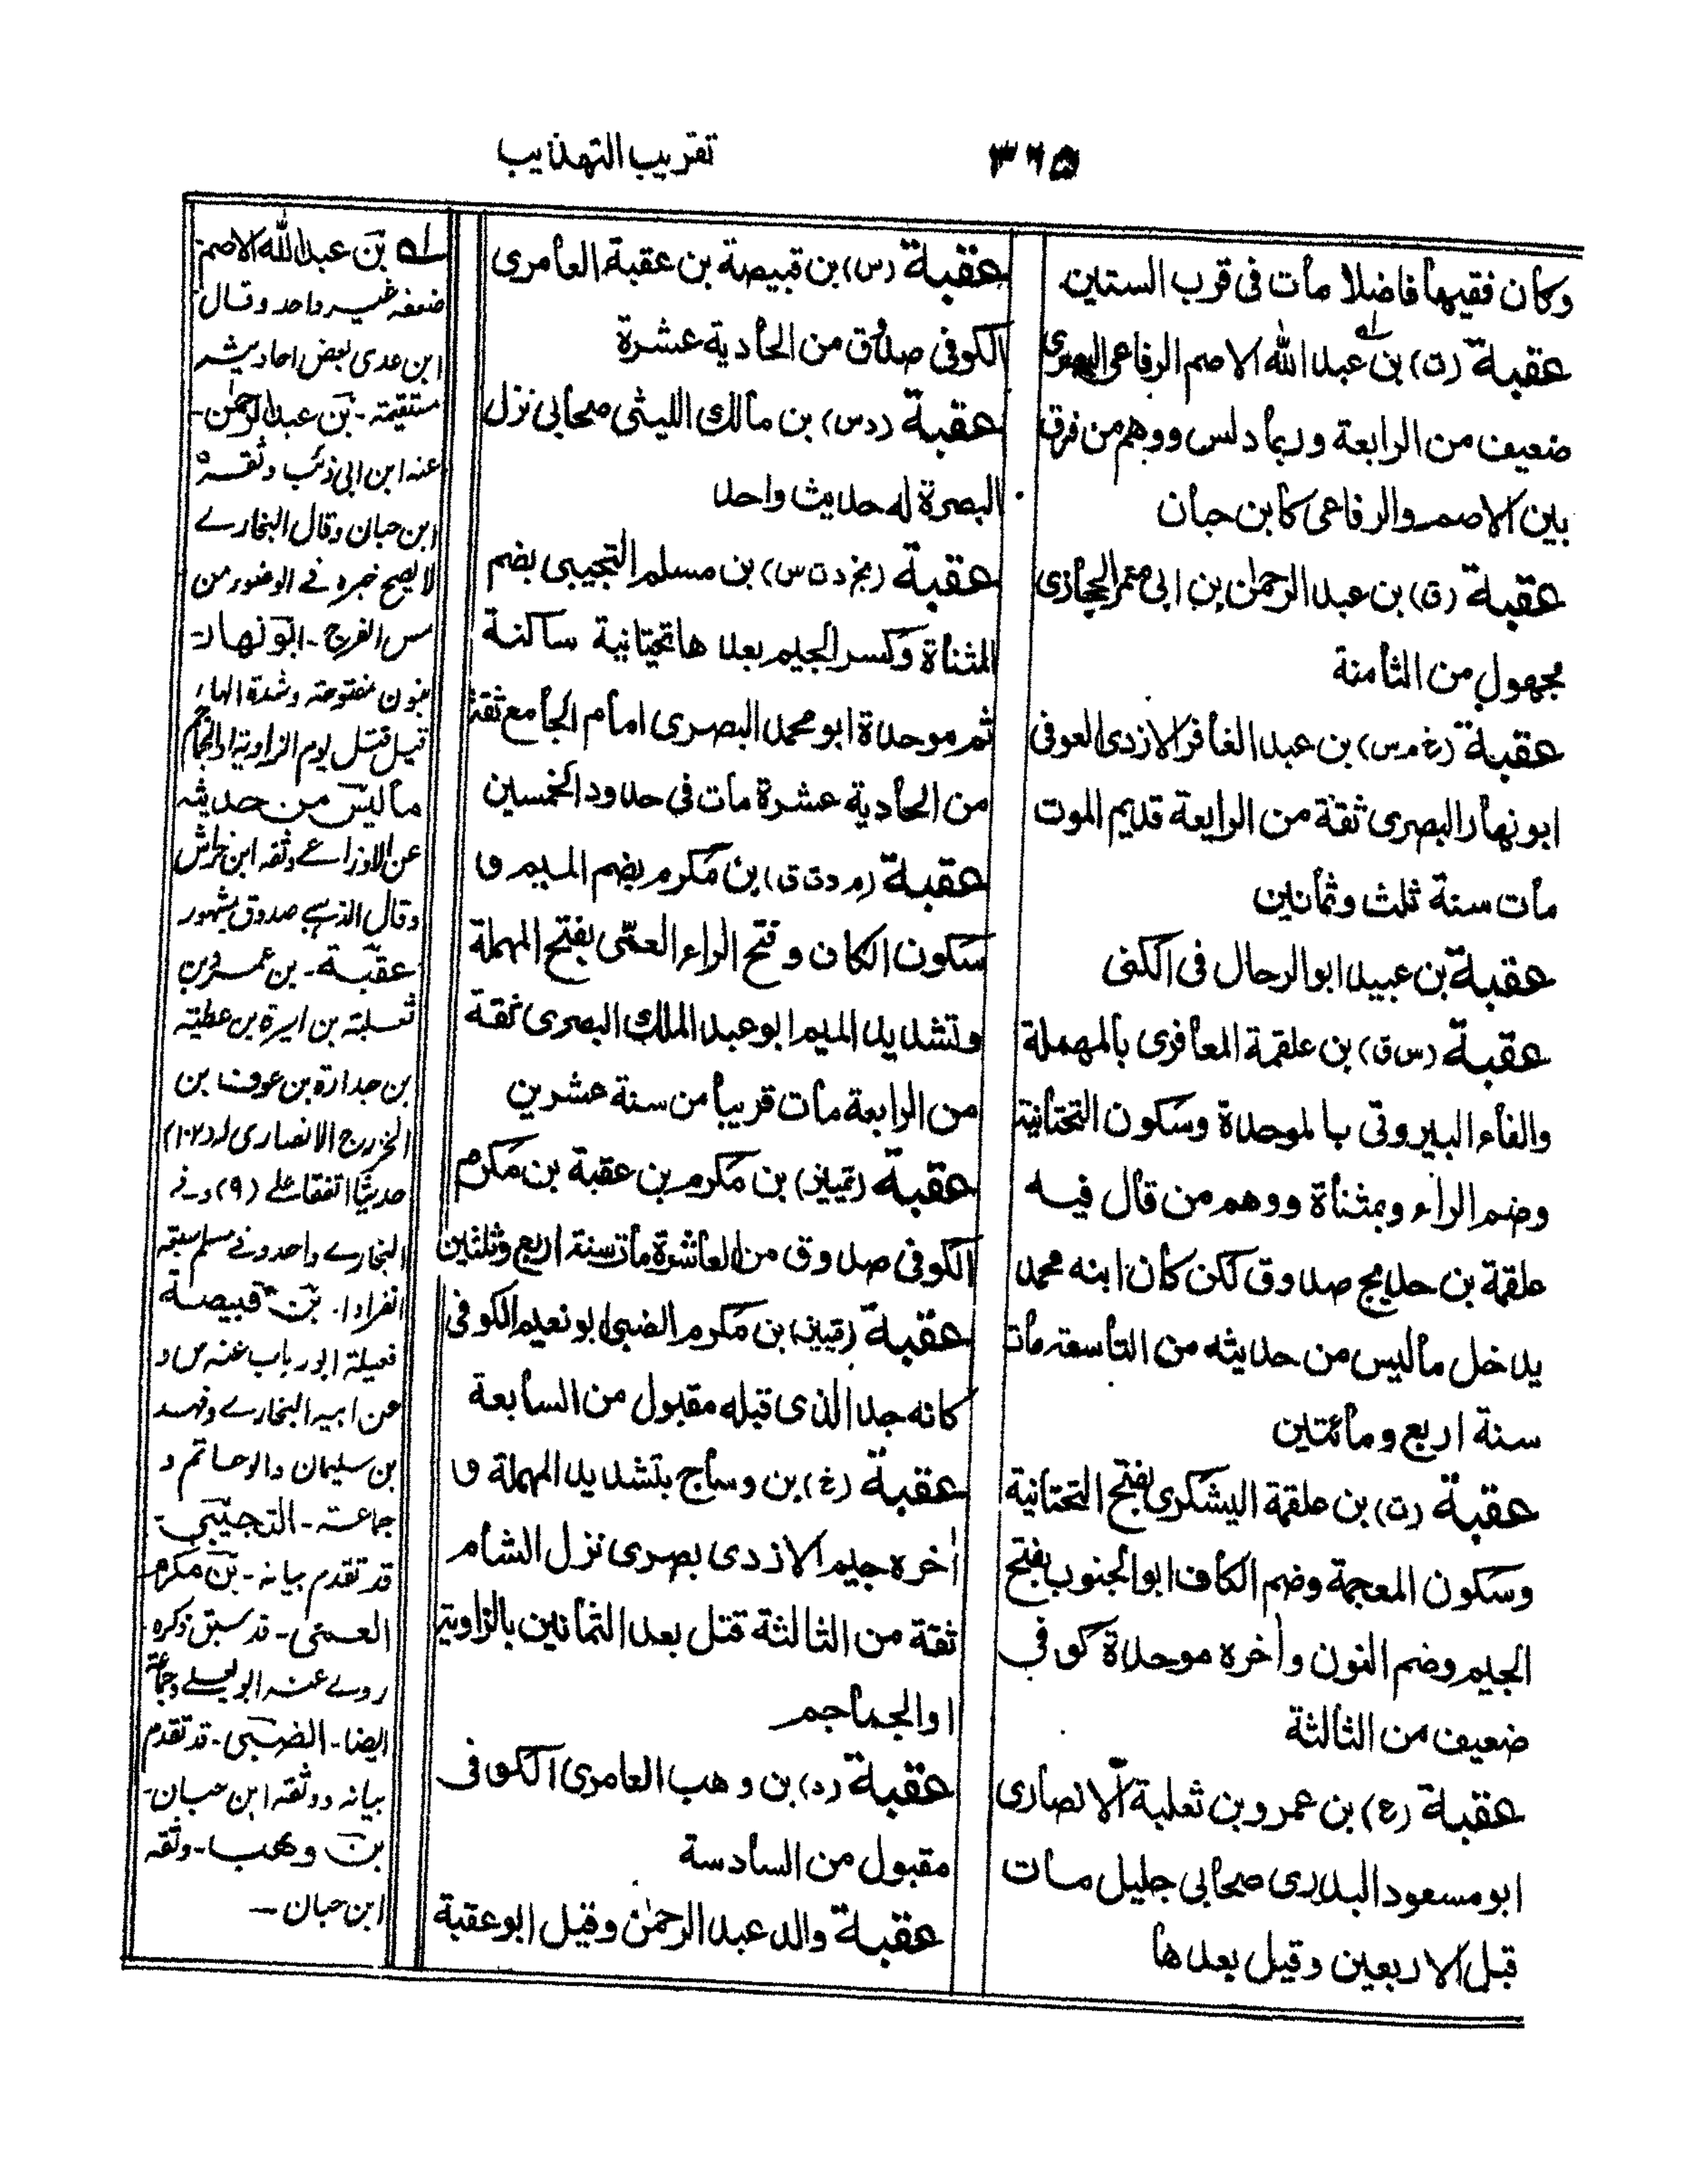 ٣٦٥
تقريب التهذيب
وكان فقيها فاضلا مات فى قرب الستين
عقبة (ت) بن عبد الله الاصم الرفاعى البصرى
ضعيف من الرابعة وربما دلس ووهم من فرق
بين الاصم والرفاعى كابن حبان
عقبة (ق) بن عبد الرحمن بن ابى معمر الحجازى
مجهول من الثامنة
عقبة (خ م س) بن عبد الغافر الازدى العوفى
ابو نهار البصرى ثقة من الرابعة قديم الموت
مات سنة ثلث وثمانين
عقبة بن عبيد ابو الرحال فى الكنى
عقبة (س ق) بن علقمة المعافرى بالمهملة
والفاء البيروتى بالموحدة وسكون التحتانية
وضم الراء وبمثناة ووهم من قال فيه
علقمة بن حديج صدوق لكن كان ابنه محمد
يدخل ما ليس من حديثه من التاسعة مات
سنة اربع ومائتين
عقبة (ت) بن علقمة اليشكرى بفتح التحتانية
وسكون المعجمة وضم الكاف ابو الجنوب بفتح
الجيم وضم النون وأخره موحدة كوفى
ضعيف من الثالثة
عقبة (ع) بن عمرو بن ثعلبة الانصارى
ابو مسعود البدرى صحابى جليل مات
قبل الاربعين وقيل بعدها
عقبة (س) بن قبيصة بن عقبة العامرى
الكوفى صدوق من الحادية عشرة
عقبة (د س) بن مالك الليثى صحابى نزل
البصرة له حديث واحد
عقبة (بخ د ت س) بن مسلم التجيبى بضم
المثناة وكسر الجيم بعدها تحتانية ساكنة
ثم موحدة ابو محمد البصرى امام الجامع ثقة
من الحادية عشرة مات فى حدود الخمسين
عقبة (م د ت ق) بن مكرم بضم الميم و
سكون الكاف وفتح الراء العمّى بفتح المهملة
وتشديد الميم ابو عبد الملك البصرى ثقة
من الرابعة مات قريبا من سنة عشرين
عقبة (تمييز) بن مكرم بن عقبة بن مكرم
الكوفى صدوق من العاشرة مات سنة اربع وثلثين
عقبة (تمييز) بن مكرم الضبى ابو نعيم الكوفى
كانه جد الذى قبله مقبول من السابعة
عقبة (خ) بن وساج بتشديد المهملة و
أخره جيم الازدى بصرى نزل الشام
ثقة من الثالثة قتل بعد الثمانين بالزاوية
او الجماجم
عقبة (د) بن وهب العامرى الكوفى
مقبول من السادسة
عقبة والد عبد الرحمن وقيل ابو عقبة
له بن عبد الله الاصم
ضعفه غير واحد وقال
ابن عدى بعض احاديثه
مستقيمة - بن عبد الرحمن -
عنه ابن ابى ذئب وثقه
ابن حبان وقال البخارے
لا يصح خبره فے الوضوء من
مس الفرج - ابو نهار -
بنون مفتوحة وشدة الهاء
قيل قتل يوم الزاوية او الجماجم
ما ليس من حديثه
عن الاوزاعے وثقه ابن خراش
وقال الذهبے صدوق مشهور
عقبة - بن عمرو بن
ثعلبة بن اسيرة بن عطية
بن جدارة بن عوف بن
الخزرج الانصارى له (١٠٢)
حديثا اتفقا علے (٩) و فے
البخارے واحد وفے مسلم سبعة
انفرادا. بن قبيصة
عنه س و
عن ابيه البخارے وفهد
بن سليمان وابو حاتم و
جماعة - التجيبى -
قد تقدم بيانه - بن مكرم
العمى - قد سبق ذكره
روے عنه ابو يعلے وجماعة
ايضا - الضبى - قد تقدم
بيانه ووثقه ابن حبان -
بن وهب - وثقه
ابن حبان —